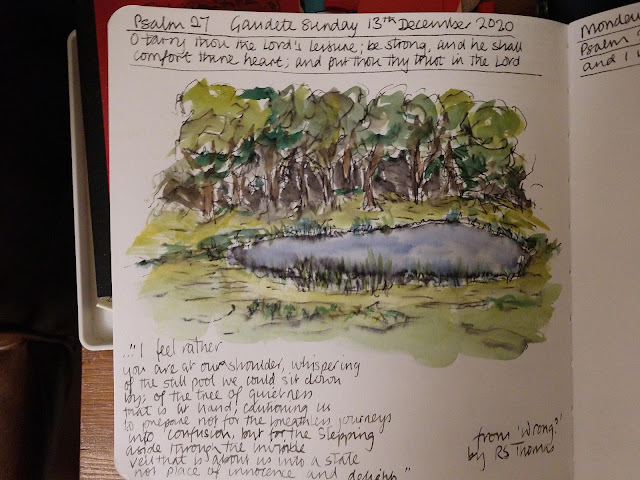 Psalm 27 Gaudete Sunday 13th December 2020
O tarry thou the Lord's leisure; be strong, and he shall
comfort thine heart; and put thou thy trust in the Lord
..." I feel rather
you are at our shoulder, whispering
of the still pool we could sit down
by; of the tree of quietness
that is at hand; cautioning us
to prepare not for the breathless journeys
into confusion, but for the stepping
aside through the invisible
veil that is about us into a state
not place of innocence and delight."
from 'Wrong?'
by RS Thomas
Monday
Psalm
and I